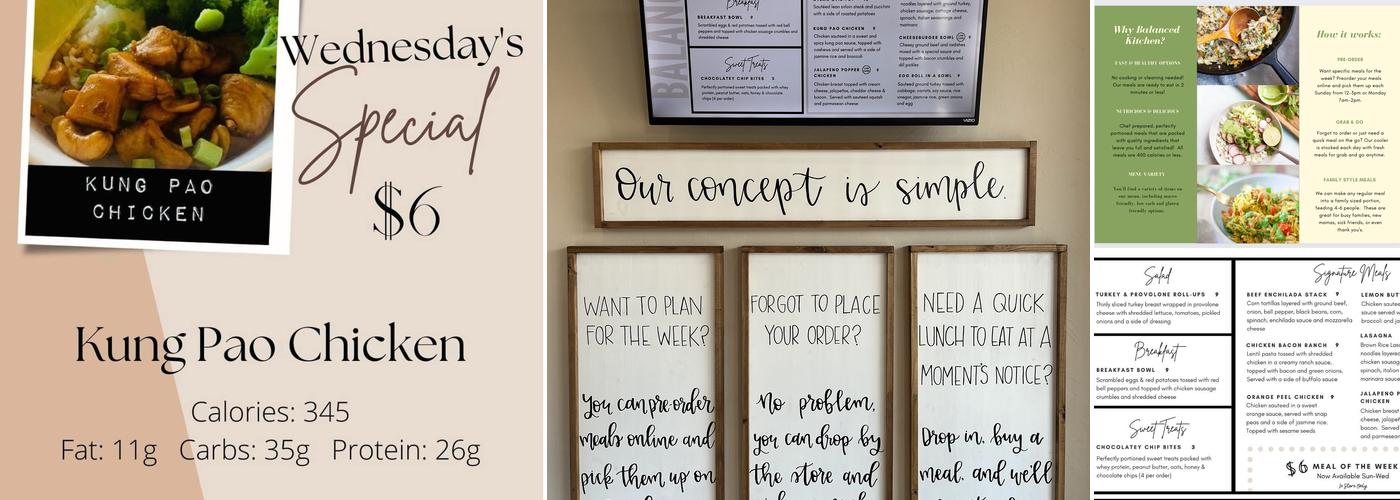 KUNG PAO
CHICKEN
Wednesday's
Special
$6
Kung Pao Chicken
Calories: 345
Fat: 11g Carbs: 35g Protein: 26g
BALAN
Breakfast
BREAKFAST BOWL 9
Scrambled eggs & red potatoes tossed with bell
peppers and topped with chicken sausage crumbles and
shredded cheese
Sweet Treats
CHOCOLATEY CHIP BITES 3
Perfectly portioned sweet treats packed with whey
protein, peanut butter, oats, honey & chocolate
chips (4 per order)
Sauteed lean sirloin steak and zucchini
with a side of roasted potatoes
KUNG PAO CHICKEN 9
Chicken sauteed in a sweet and
spicy kung pao sauce, topped with
cashews and served with a side of
jasmine rice and broccoli
JALAPENO POPPER 9
CHICKEN
Chicken breast topped with cream
cheese, jalapeños, cheddar cheese &
bacon. Served with sauteed squash
and parmesan cheese
chicken sausage, cottage cheese,
spinach, italian seasonings and
marinara
CHEESEBURGER BOWL 9
Cheesy ground beef and radishes
mixed with a special sauce and
topped with bacon crumbles and
dill pickles
EGG ROLL IN A BOWL 9
Sauteed ground turkey tossed with
cabbage, carrots, soy sauce, rice
vinegar, jasmine rice, green onions
and egg
VIZIO
Our concept is simple.
WANT TO PLAN
FOR THE WEEK?
You can pre-order
meals online and
pick them up on
FORGOT TO PLACE
YOUR ORDER?
No problem,
you can drop by
the store and
NEED A QUICK
LUNCH TO EAT AT A
MOMENT'S NOTICE?
Drop in, buy a
meal, and we'll
Why Balanced
Kitchen?
FAST & HEALTHY OPTIONS
No cooking or cleaning needed!
Our meals are ready to eat in 2
minutes or less!
NUTRICIOUS & DELICIOUS
Chef prepared, perfectly
portioned meals that are packed
with quality ingredients that
leave you full and satisfied! All
meals are 400 calories or less.
MENU VARIETY
You'll find a variety of items on
our menu, including macro
friendly, low carb and gluten
friendly options.
How it works:
PRE-ORDER
Want specific meals for the
week? Preorder your meals
online and pick them up each
Sunday from 12-3pm or Monday
7am-2pm.
GRAB & GO
Forgot to order or just need a
quick meal on the go? Our cooler
is stocked each day with fresh
meals for grab and go anytime.
FAMILY STYLE MEALS
We can make any regular meal
into a family sized portion,
feeding 4-6 people. These are
great for busy families, new
mamas, sick friends, or even
thank you's.
Salad
TURKEY & PROVOLONE ROLL-UPS 9
Thinly sliced turkey breast wrapped in provolone
cheese with shredded lettuce, tomatoes, pickled
onions and a side of dressing
Breakfast
BREAKFAST BOWL 9
Scrambled eggs & red potatoes tossed with red
bell peppers and topped with chicken sausage
crumbles and shredded cheese
Sweet Treats
CHOCOLATEY CHIP BITES 3
Perfectly portioned sweet treats packed with
whey protein, peanut butter, oats, honey &
chocolate chips (4 per order)
Signature Meals
BEEF ENCHILADA STACK 9
Corn tortillas layered with ground beef,
onion, bell pepper, black beans, corn,
spinach, enchilada sauce and mozzarella
cheese
CHICKEN BACON RANCH 9
Lentil pasta tossed with shredded
chicken in a creamy ranch sauce,
topped with bacon and green onions.
Served with a side of buffalo sauce
ORANGE PEEL CHICKEN 9
Chicken sauteed in a sweet
orange sauce, served with snap
peas and a side of jasmine rice.
Topped with sesame seeds
LEMON BUT
Chicken saute
sauce served w
broccoli and ja
LASAGNA
Brown Rice Las
noodles layered
chicken sausag
spinach, italian
marinara
JALAPENO P
CHICKEN
Chicken breast
cheese, jalapeñ
bacon. Served
and parmesan
$6 MEAL OF THE WEEK
Now Available Sun-Wed
In Store Only